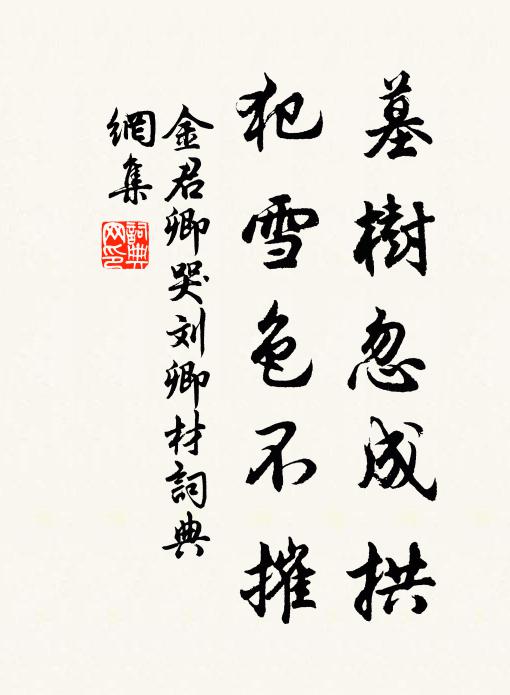 墓樹忽成拱
犯雪色不摧
金君卿哭刘卿材詞典
網集
詞典网印